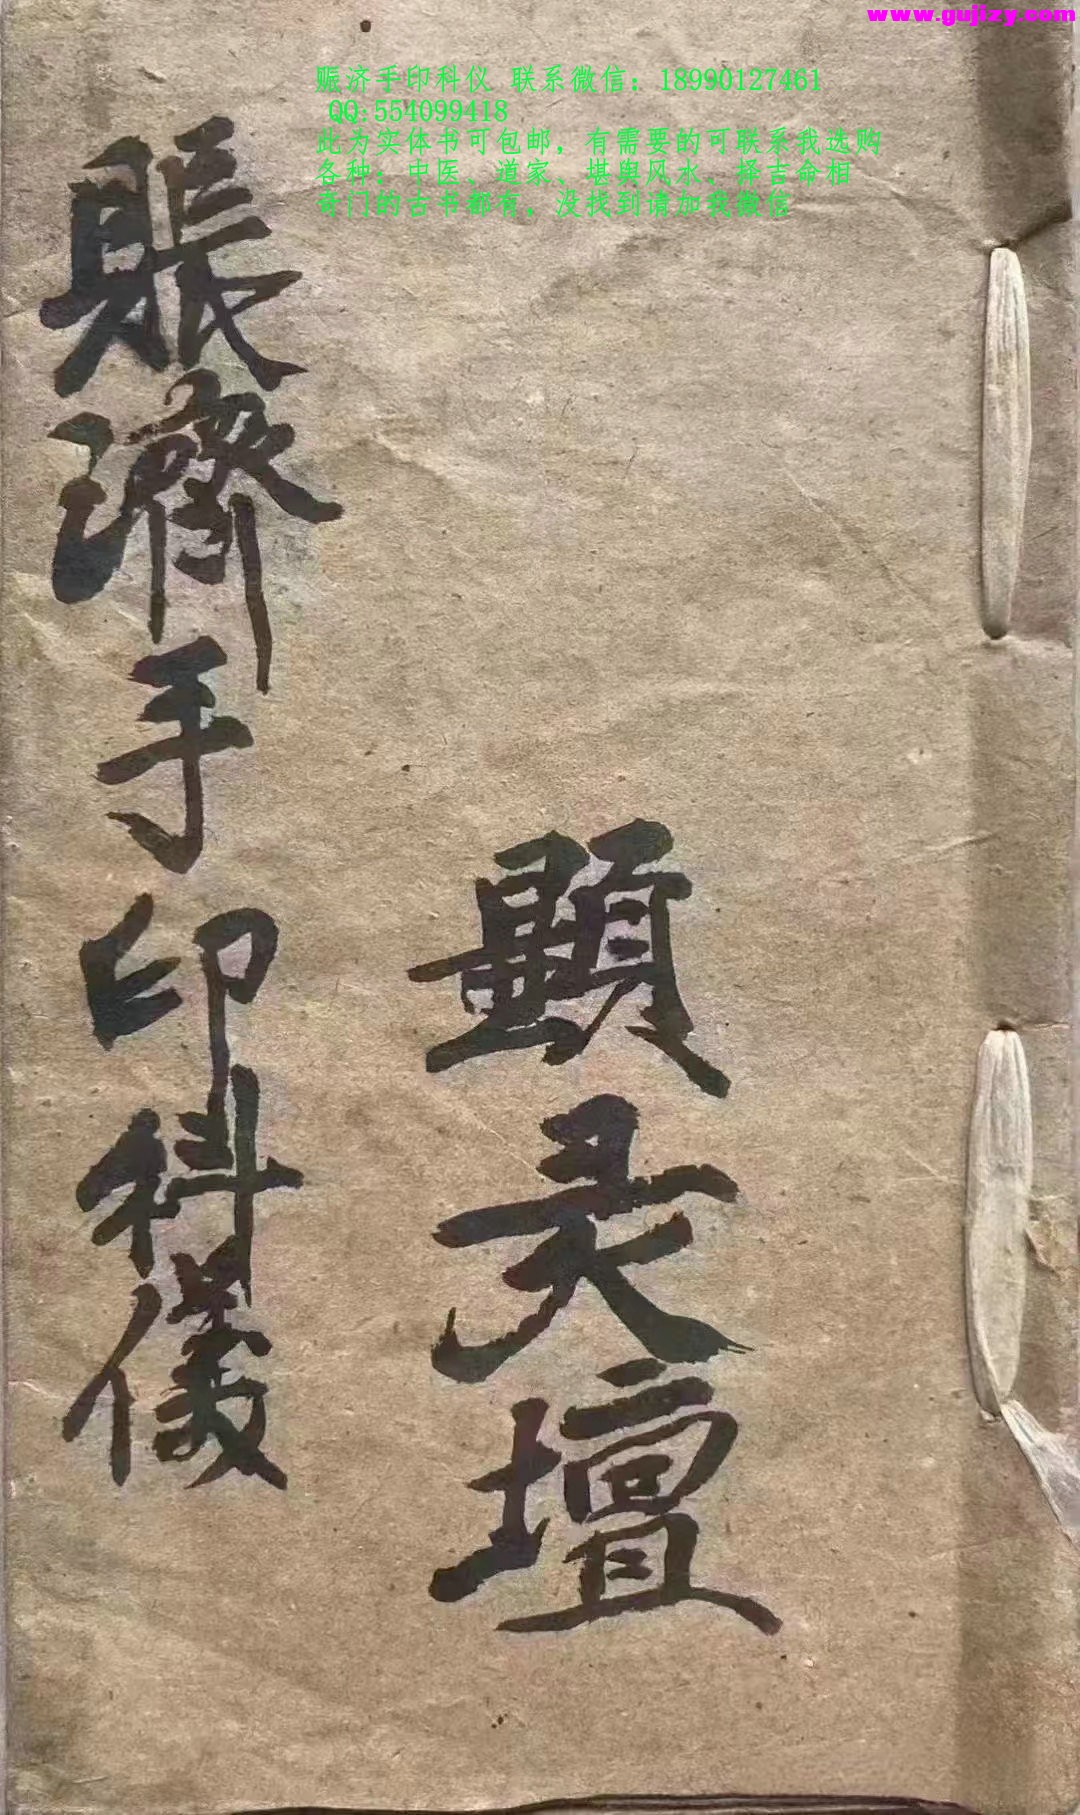 www.gujizy.com
赈济手印科仪 联系微信：18990127461
QQ:554099418
此为实体书可包邮，有需要的可联系我选购
各种：中医、道家、堪舆风水、择吉命相
奇门的古书都有，没找到请加我微信
賬濟手印科儀
顕灵壇